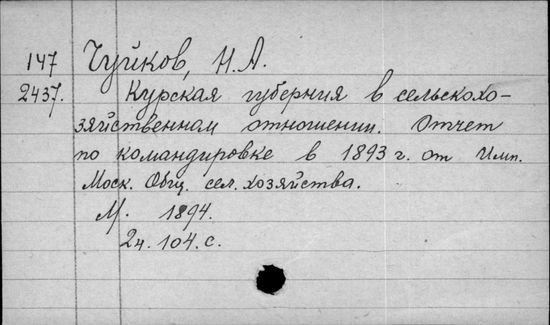 147 Чуйков, Н.А.
2437. Курская губерния в сельскохо-
зяйственном отношении. Отчет
по командировке в 1893 г. от Имп.
Моск. Общ. сел. хозяйства.
М. 1894.
2ч. 104.с.